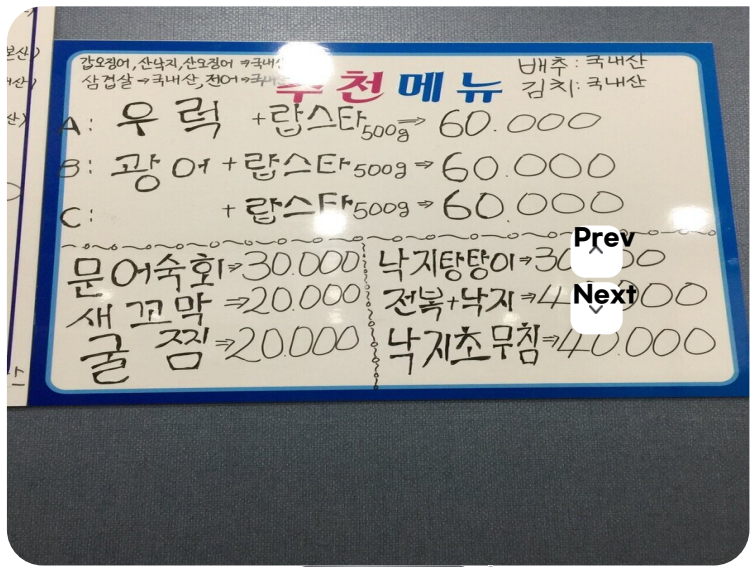 갑오징어, 산낙지, 산오징어 ⇒국내산
삼겹살→국내산, 전어→국내산
추천메뉴
배추: 국내산
김치: 국내산
A: 우럭 +랍스타500g⇒ 60.000
B: 광어 +랍스타500g⇒ 60.000
C: +랍스타500g⇒ 60.000
문어숙회⇒30.000
새꼬막 ⇒20.000
굴찜⇒20.000
낙지탕탕이⇒
전복+낙지⇒
낙지초무침⇒40.000
Prev
Next
본산)
산)